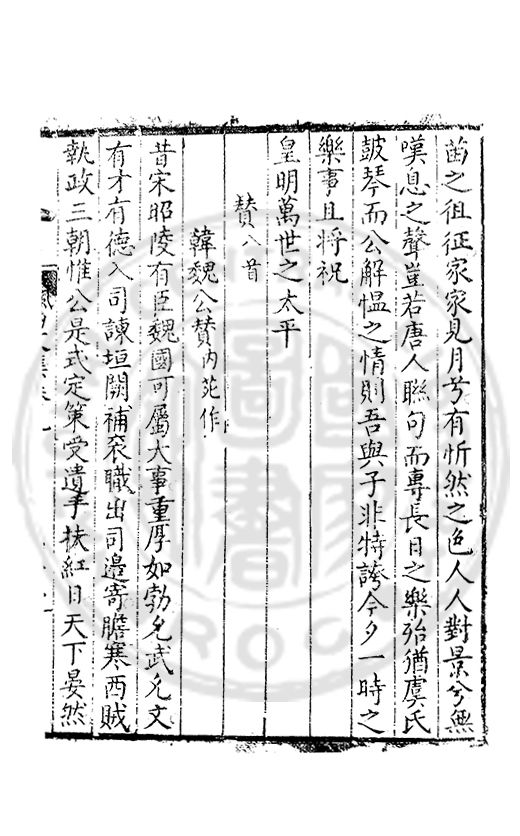 茵之徂征家家見月兮有忻然之色人人對景兮無
嘆息之聲豈若唐人聯句而專長日之樂殆猶虞氏
鼓琴而公解愠之情則吾與子非特誇今夕一時之
樂事且將祝
皇明萬世之太平
賛八首
韓魏公賛内苑作
昔宋昭陵有臣魏國可屬大事重厚如勃允武允文
有才有德入司諫垣闕補衮職出司邊寄膽寒西賊
執政三朝惟公是式定策受遺手扶紅日天下晏然